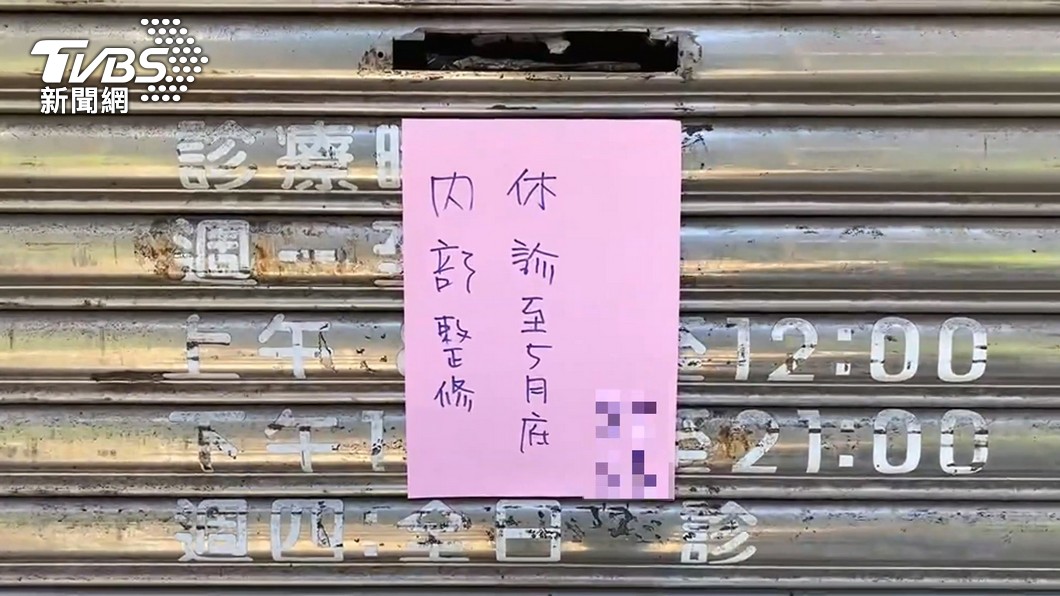 TVBS
新聞網
休診至5月底
內部整修
診療
週一
上午 12:00
下午1 至21:00
週四:全日 診